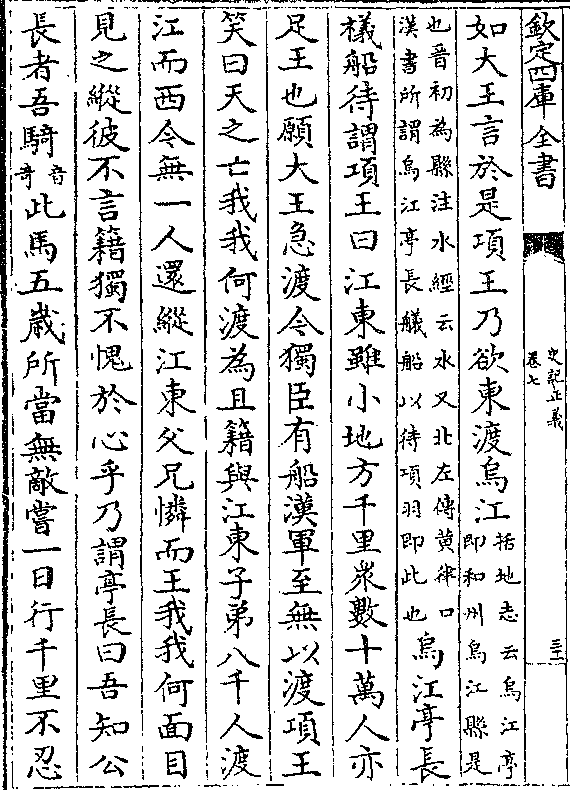 欽定四庫全書
史記正義
卷七
如大王言於是項王乃欲東渡烏江
括地志云烏江亭
即和州烏江縣是
也晉初為縣注水經云水又北左傳黃律口
漢書所謂烏江亭長艤船以待項羽即此也
烏江亭長
檥船待謂項王曰江東雖小地方千里衆數十萬人亦
足王也願大王急渡今獨臣有船漢軍至無以渡項王
笑曰天之亡我我何渡為且籍與江東子弟八千人渡
江而西今無一人還縱江東父兄憐而王我我何面目
見之縱彼不言籍獨不愧於心乎乃謂亭長曰吾知公
長者吾騎
音
奇
此馬五歲所當無敵嘗一日行千里不忍